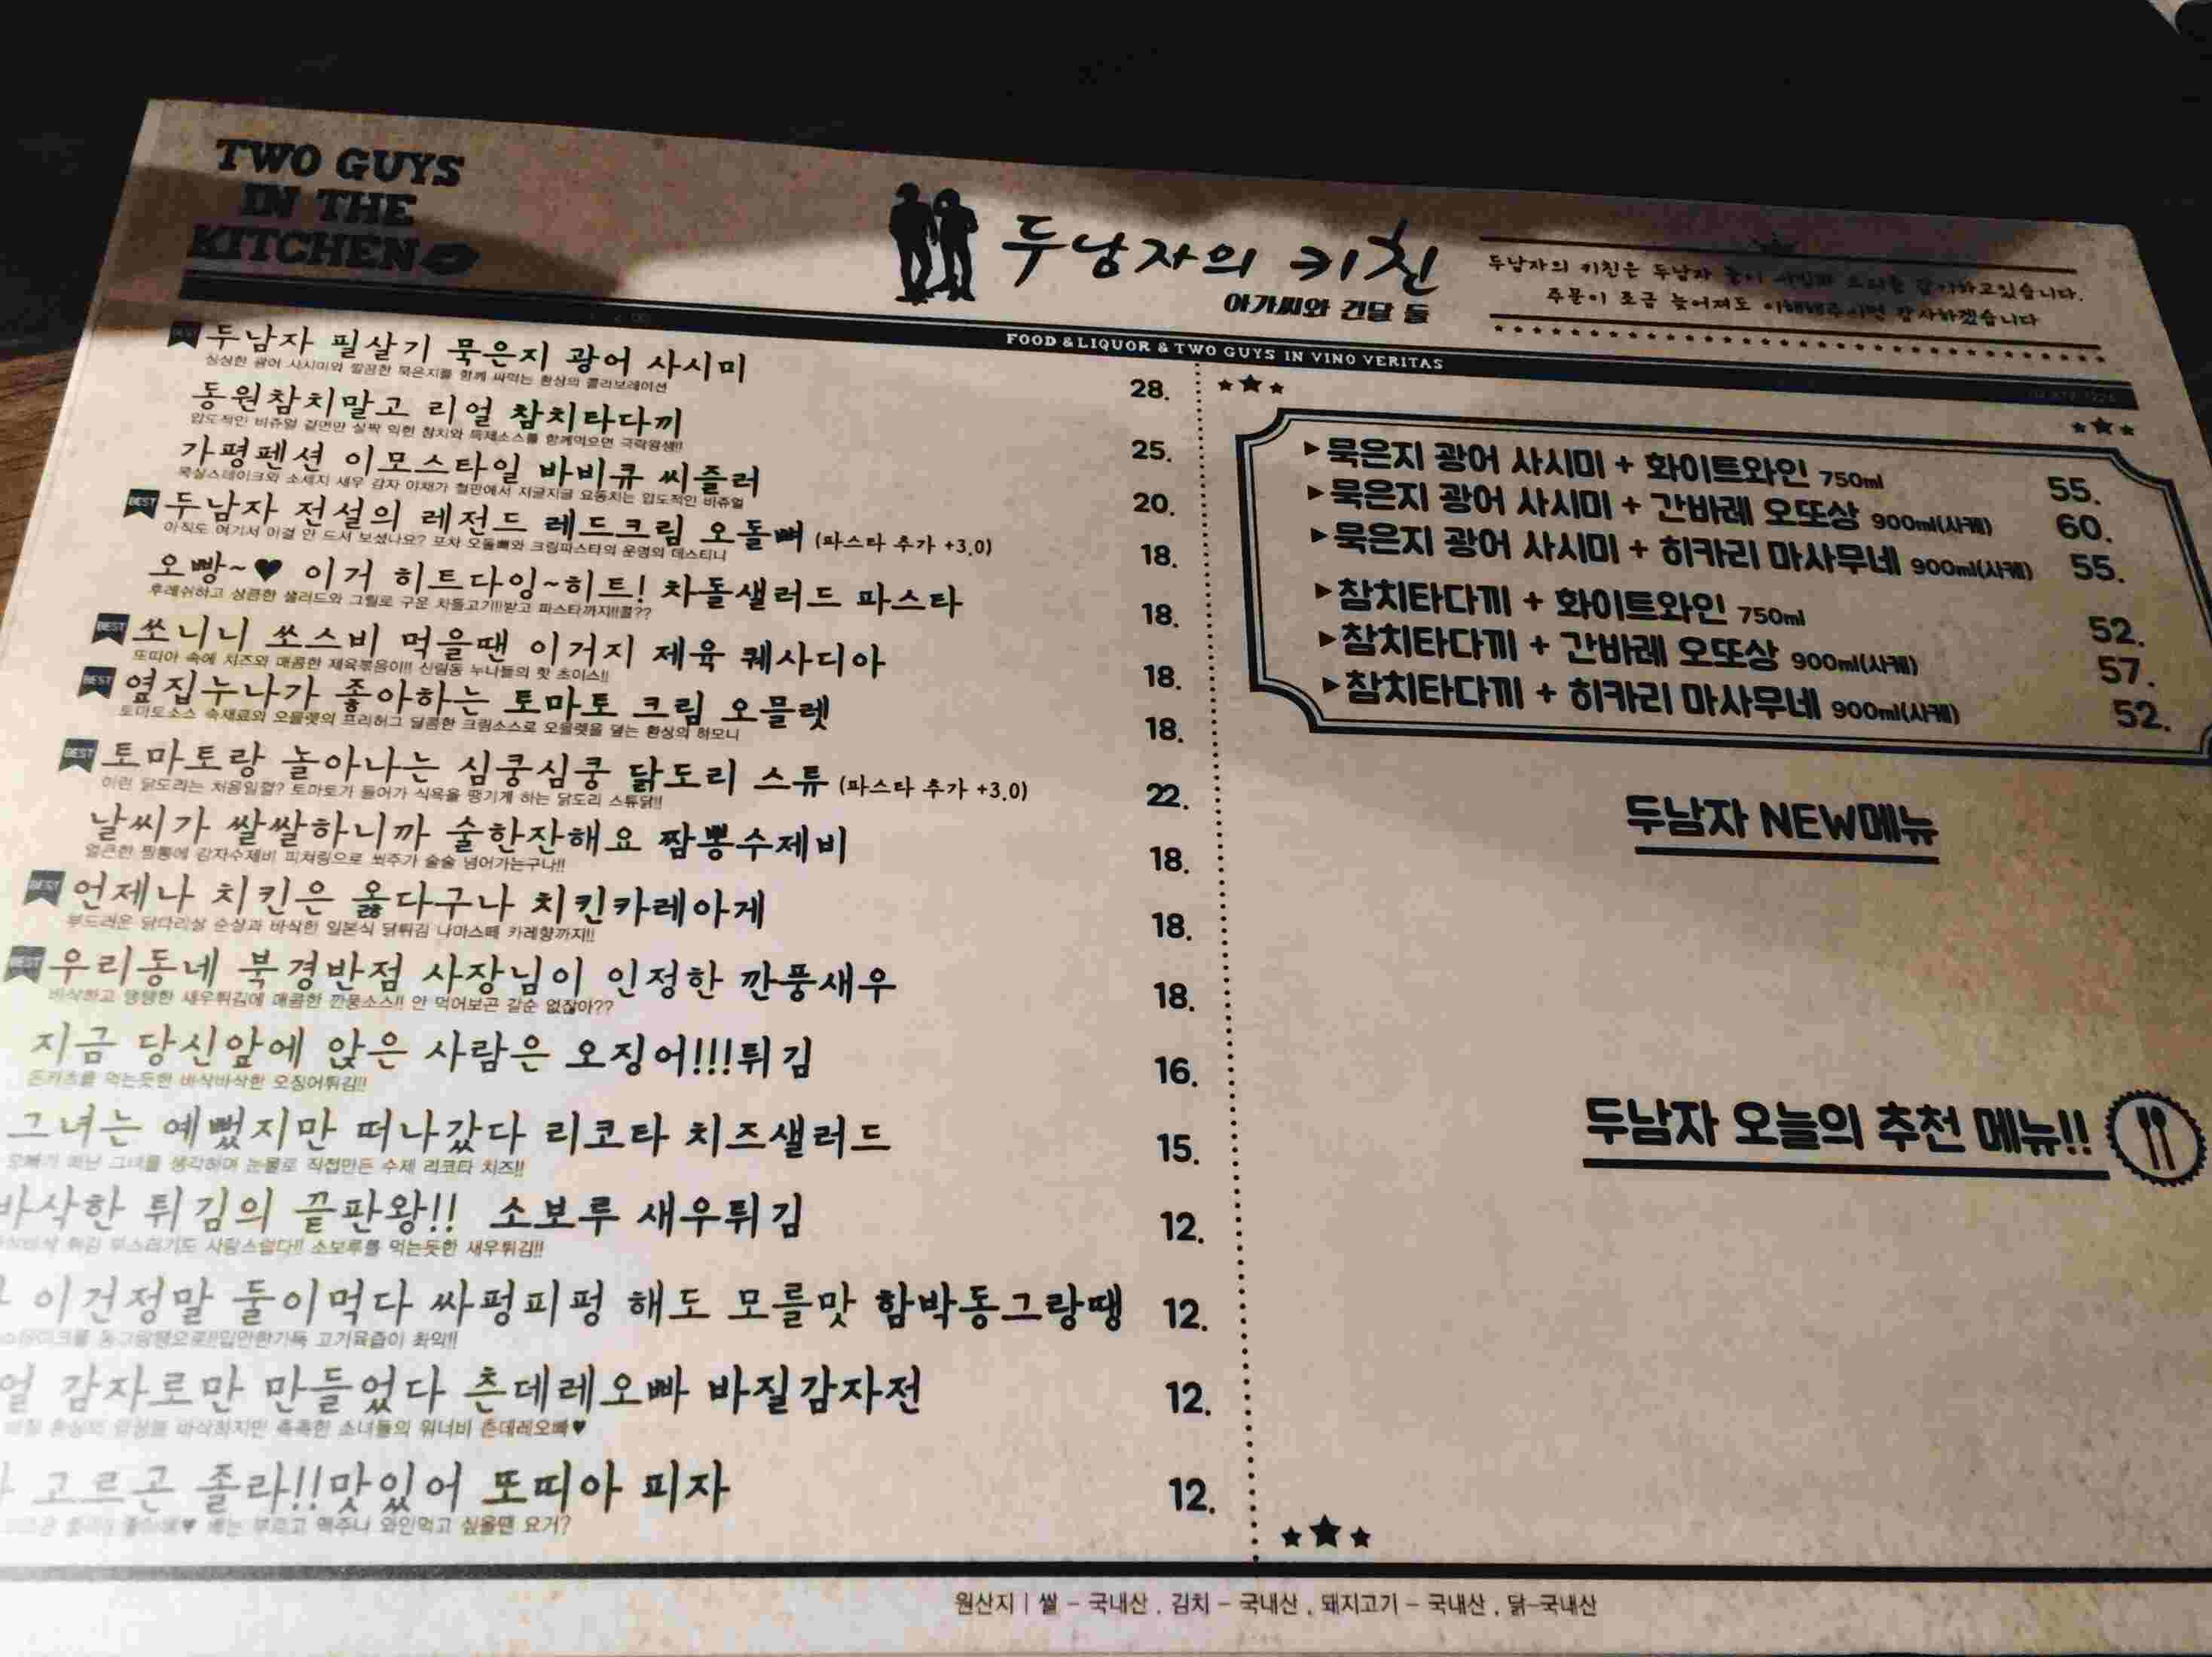 TWO GUYS
IN THE
KITCHEN
두남자의 키친
아가씨와 건달 들
두남자의 키친은 두남자 둘이 서빙과 요리를 같이하고있습니다.
주문이 조금 늦어져도 이해해주시면 감사하겠습니다
FOOD & LIQUOR & TWO GUYS IN VINO VERITAS
BEST 두남자 필살기 묵은지 광어 사시미 28.
싱싱한 광어 사시미와 깔끔한 묵은지를 함께 싸먹는 환상의 콜라보레이션
동원참치말고 리얼 참치타다끼 25.
압도적인 비쥬얼 겉면만 살짝 익힌 참치와 특제소스를 함께먹으면 극락왕생!!
가평펜션 이모스타일 바비큐 씨즐러 20.
목살스테이크와 소세지 새우 감자 야채가 철판에서 지글지글 요동치는 압도적인 비쥬얼
BEST 두남자 전설의 레전드 레드크림 오돌뼈 (파스타 추가 +3.0) 18.
아직도 여기서 이걸 안 드셔 보셨나요? 포차 오돌뼈와 크림파스타의 운명의 데스티니
오빵~♥ 이거 히트다잉~히트! 차돌샐러드 파스타 18.
후레쉬하고 상큼한 샐러드와 그릴로 구운 차돌고기!!받고 파스타까지!!콜??
BEST 쏘니니 쏘스비 먹을땐 이거지 제육 퀘사디아 18.
또띠아 속에 치즈와 매콤한 제육볶음이!! 신림동 누나들의 핫 초이스!!
BEST 옆집누나가 좋아하는 토마토 크림 오믈렛 18.
토마토소스 속재료와 오믈렛의 프리허그 달콤한 크림소스로 오믈렛을 덮는 환상의 하모니
BEST 토마토랑 놀아나는 심쿵심쿵 닭도리 스튜 (파스타 추가 +3.0) 22.
이런 닭도리는 처음일껄? 토마토가 들어가 식욕을 땡기게 하는 닭도리 스튜닭!!
날씨가 쌀쌀하니까 술한잔해요 짬뽕수제비 18.
얼큰한 짬뽕에 감자수제비 피쳐링으로 쐬주가 술술 넘어가는구나!!
BEST 언제나 치킨은 옳다구나 치킨카레아게 18.
부드러운 닭다리살 순살과 바삭한 일본식 닭튀김 나마스떼 카레향까지!!
BEST 우리동네 북경반점 사장님이 인정한 깐풍새우 18.
바삭하고 탱탱한 새우튀김에 매콤한 깐풍소스!! 안 먹어보곤 갈순 없잖아??
지금 당신앞에 앉은 사람은 오징어!!!튀김 16.
돈카츠를 먹는듯한 바삭바삭한 오징어튀김!!
그녀는 예뻤지만 떠나갔다 리코타 치즈샐러드 15.
떠난 그녀를 생각하며 눈물로 직접만든 수제 리코타 치즈!!
바삭한 튀김의 끝판왕!! 소보루 새우튀김 12.
튀김 부스러기도 사랑스럽다!! 소보루를 먹는듯한 새우튀김!!
이건정말 둘이먹다 싸펑피펑 해도 모를맛 함박동그랑땡 12.
동그랑땡으로!!입안한가득 고기육즙이 촤악!!
감자로만 만들었다 츤데레오빠 바질감자전 12.
바삭하지만 촉촉한 소녀들의 워너비 츤데레오빠♥
고르곤 졸라!!맛있어 또띠아 피자 12.
배는 부르고 맥주나 와인먹고 싶을땐 요거?
▶묵은지 광어 사시미 + 화이트와인 750ml 55.
▶묵은지 광어 사시미 + 간바레 오또상 900ml(사케) 60.
▶묵은지 광어 사시미 + 히카리 마사무네 900ml(사케) 55.
▶참치타다끼 + 화이트와인 750ml 52.
▶참치타다끼 + 간바레 오또상 900ml(사케) 57.
▶참치타다끼 + 히카리 마사무네 900ml(사케) 52.
두남자 NEW메뉴
두남자 오늘의 추천 메뉴!!
원산지 | 쌀 - 국내산 . 김치 - 국내산 . 돼지고기 - 국내산 . 닭-국내산